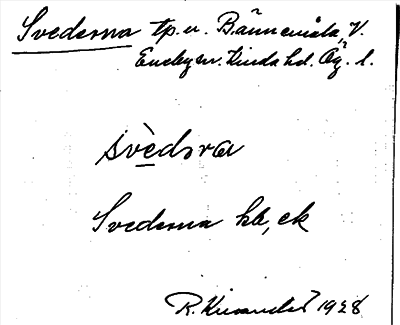 Svederna tp. u. Bännemåla, V.
Eneby sn. Kinda hd. Ög. l.
svèdṣra
Svederna hb, ek
R. 1928